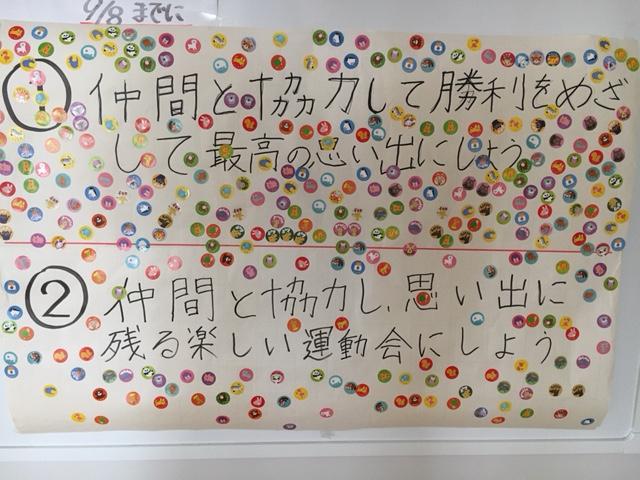 9/8までに
① 仲間と協力して勝利をめざ
して最高の思い出にしよう。
② 仲間と協力し、思い出に
残る楽しい運動会にしよう